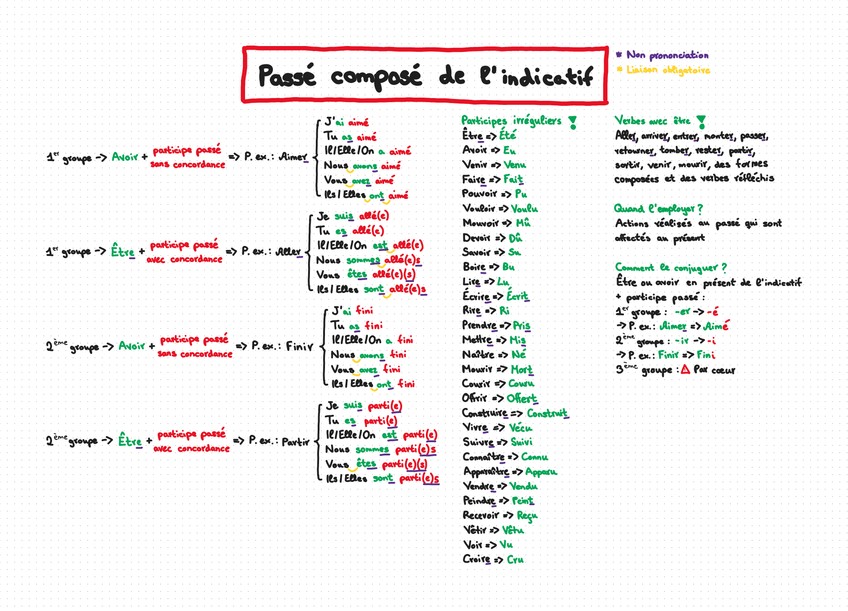 Passé composé de l'indicatif
* Non prononciation
* Liaison obligatoire
1er groupe -> Avoir + participe passé sans concordance => P. ex.: Aimer
J'ai aimé
Tu as aimé
Il/Elle/On a aimé
Nous avons aimé
Vous avez aimé
Ils/Elles ont aimé
1er groupe -> Être + participe passé avec concordance => P. ex.: Aller
Je suis allé(e)
Tu es allé(e)
Il/Elle/On est allé(e)
Nous sommes allé(e)s
Vous êtes allé(e)(s)
Ils/Elles sont allé(e)s
2ème groupe -> Avoir + participe passé sans concordance => P. ex.: Finir
J'ai fini
Tu as fini
Il/Elle/On a fini
Nous avons fini
Vous avez fini
Ils/Elles ont fini
2ème groupe -> Être + participe passé avec concordance => P. ex.: Partir
Je suis parti(e)
Tu es parti(e)
Il/Elle/On est parti(e)
Nous sommes parti(e)s
Vous êtes parti(e)(s)
Ils/Elles sont parti(e)s
Participes irréguliers !
Être => Été
Avoir => Eu
Venir => Venu
Faire => Fait
Pouvoir => Pu
Vouloir => Voulu
Mouvoir => Mû
Devoir => Dû
Savoir => Su
Boire => Bu
Lire => Lu
Écrire => Écrit
Rire => Ri
Prendre => Pris
Mettre => Mis
Naître => Né
Mourir => Mort
Courir => Couru
Offrir => Offert
Construire => Construit
Vivre => Vécu
Suivre => Suivi
Connaître => Connu
Apparaître => Apparu
Vendre => Vendu
Peindre => Peint
Recevoir => Reçu
Vêtir => Vêtu
Voir => Vu
Croire => Cru
Verbes avec être !
Aller, arriver, entrer, monter, passer,
retourner, tomber, rester, partir,
sortir, venir, mourir, des formes
composées et des verbes réfléchis
Quand l'employer ?
Actions réalisés au passé qui sont
affectés au présent
Comment le conjuguer ?
Être ou avoir en présent de l'indicatif
+ participe passé :
1er groupe : -er -> -é
-> P. ex.: Aimer => Aimé
2ème groupe : -ir -> -i
-> P. ex.: Finir => Fini
3ème groupe : Par cœur